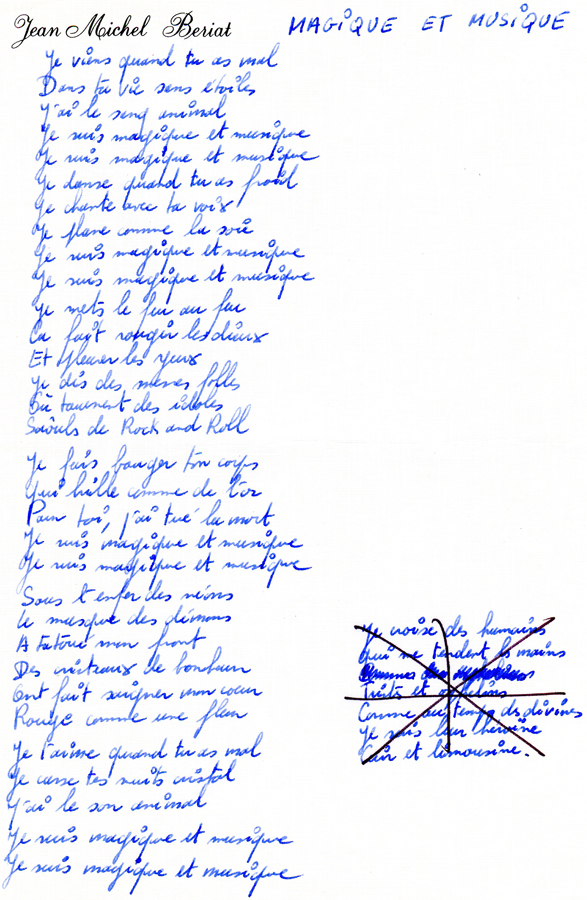 Jean Michel Beriat
MAGIQUE ET MUSIQUE
Je viens quand tu as mal
Dans ta vie sans étoiles
J'ai le sang animal
Je suis magique et musique
Je suis magique et musique
Je danse quand tu as froid
Je chante avec ta voix
Je plane comme la soie
Je suis magique et musique
Je suis magique et musique
Je mets le feu au feu
Ca fait rougir les dieux
Et pleurer les yeux
Je dis des messes folles
Où tournent des idoles
Saoûls de Rock and Roll
Je fais bouger ton corps
Qui brille comme de l'or
Pour toi, j'ai tué la mort
Je suis magique et musique
Je suis magique et musique
Sous l'enfer des néons
Le masque des démons
A tatoué mon front
Des couteaux de bonheur
Ont fait saigner mon coeur
Rouge comme une fleur
Je t'aime quand tu as mal
Je casse tes nuits cristal
J'ai le son animal
Je suis magique et musique
Je suis magique et musique
Je croise des humains
Qui me tendent les mains
Tristes et orphelins
Comme au temps des divines
Je suis leur héroïne
Cuir et limousine.